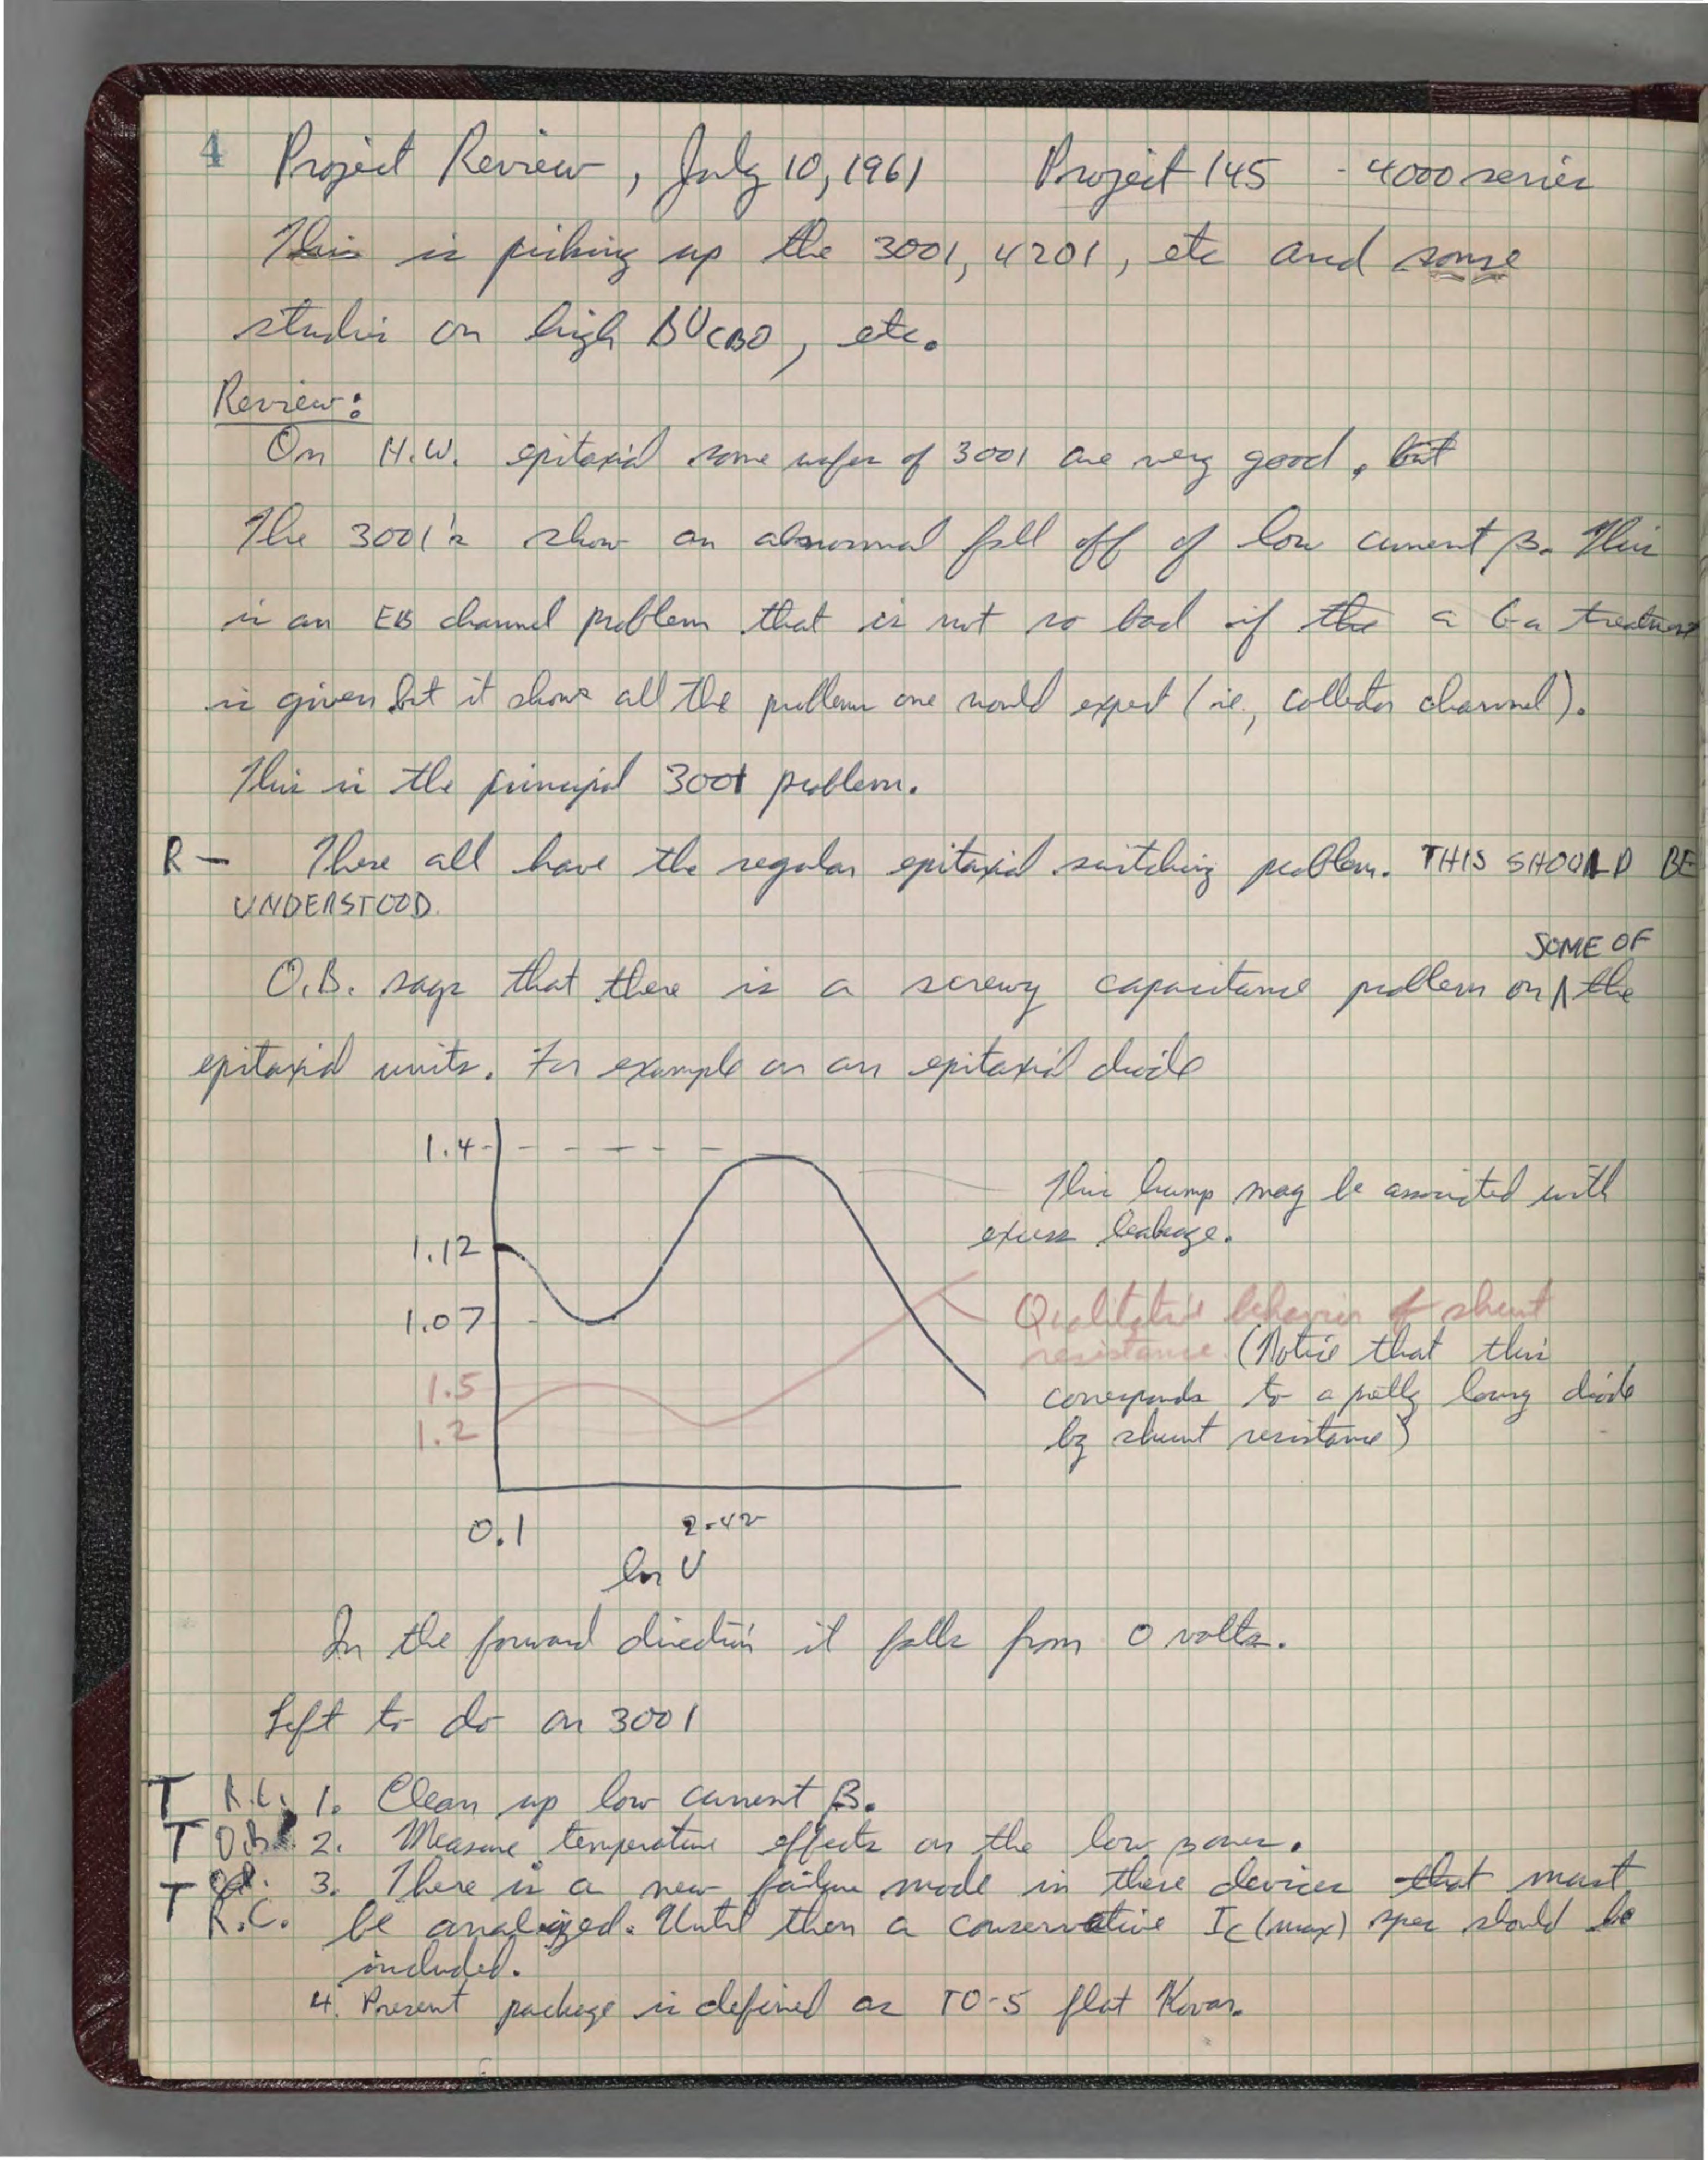 4 Project Review, July 10, 1961 Project 145 - 4000 series
This is picking up the 3001, 4201, etc and some
studies on high BVCBO, etc.
Review:
On H.W. epitaxial some wafers of 3001 are very good, but
The 3001's show an abnormal fall off of low current β. This
is an EB channel problem that is not so bad if the a Ga treatment
is given but it shows all the problems one would expect (ie., collector channel).
This is the principal 3001 problem.
R — These all have the regular epitaxial switching problem. THIS SHOULD BE
UNDERSTOOD.
SOME OF
O.B. says that there is a screwy capacitance problem on ∧ the
epitaxial units. For example on an epitaxial diode
1.4
This hump may be associated with
excess leakage.
1.12
1.07
Qualitative behavior of shunt
resistance. (Notice that this
1.5
corresponds to a pretty lousy diode
1.2
by shunt resistance)
0.1 2-42
ln V
In the forward direction it falls from 0 volts.
Left to do on 3001
T R.C. 1. Clean up low current β.
T O.B. 2. Measure temperature effects on the low
T 3. There is a new failure mode in these devices that must
R.C. be analized. Until then a conservative IC (max) spec should be
included.
4. Present package is defined as TO-5 flat Kovar.